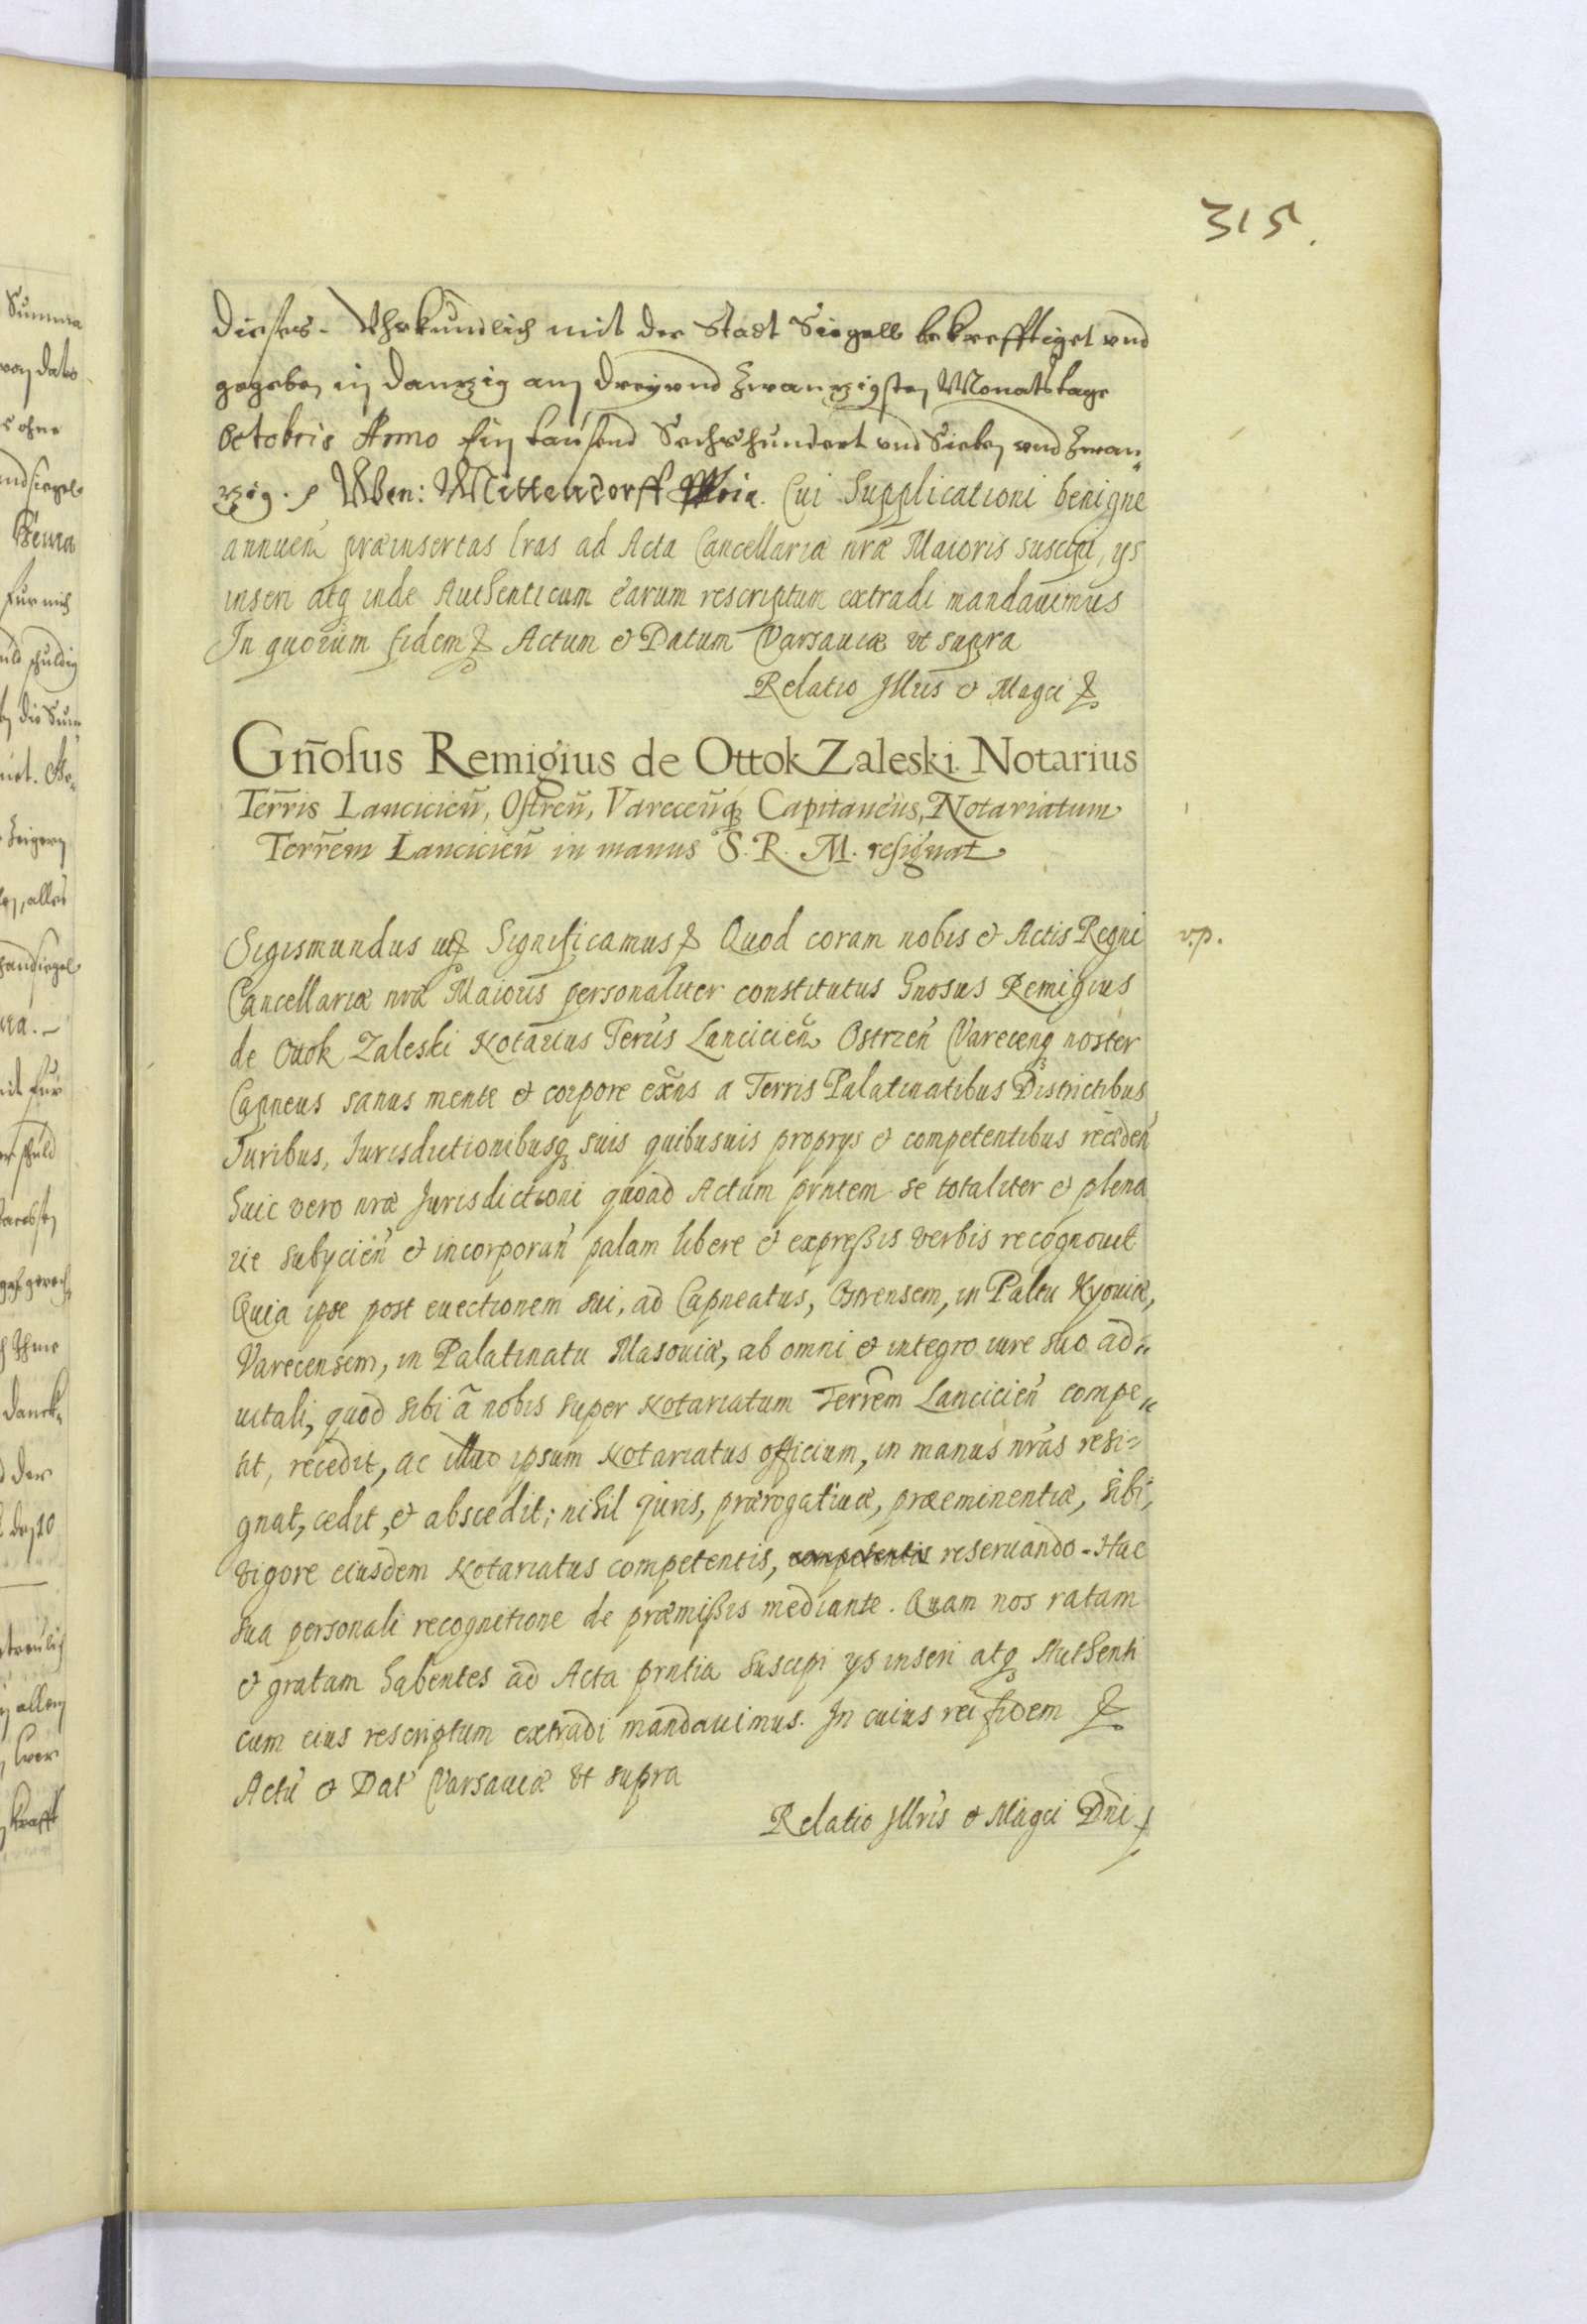 315.
dieses. Vhrkundlich mit der Stadt Siegell bekrefftiget vnd
gegeben in Danzig am dreÿ vnd zwanzigsten Monatstage
Octobris Anno Ein tausend Sechshundert vnd Sieben vnd zwan„
zig. Wen: Mittendorff Cui Supplicationi benigne
annuen̄ præinsertas lras ad Acta Cancellariæ nræ Maioris suscipi, ys
inseri atq inde Authenticum earum rescriptum extradi mandauimus
In quorum fidem Actum & Datum Varsauiæ vt supra
Relatio Jllris & Magci
Gn̄osus Remigius de Ottok Zaleski Notarius
Terris Lancicien̄, Ostren̄, Varecen̄q Capitaneus, Notariatum
Terrēm Lancicien̄ in manus S. R. M. resignat
Sigismundus Significamus Quod coram nobis & Actis Regni
v.p.
Cancellariæ nræ Maioris personaliter constitutus Gnosus Remigius
de Ottok Zaleski Notarius Terris Lancicien̄ Ostrzen̄ Varecenq noster
Capneus sanus mente & corpore exn̄s a Terris Palatinatibus Districtibus
Juribus, Jurisdictionibusq suis quibusuis proprys & competentibus receden̄
huic vero nræ Jurisdictioni quoad Actum prntem se totaliter & plena
rie subycien̄ & incorporan̄ palam libere & expreßis verbis recognouit
Quia ipse post euectionem sui, ad Capneatus, Ostrensem, in Paltu Kyouiæ,
Varecensem, in Palatinatu Masouiæ, ab omni & integro iure suo ad„
uitali, quod sibi ā nobis super Notariatum Terrēm Lancicien̄ compe„
tit, recedit, ac illud ipsum Notariatus officium, in manus nras resi=
gnat, cedit, & abscedit; nihil juris, prærogatiuæ, præeminentiæ, sibi,
vigore eiusdem Notariatus competentis, competentis reseruando. Hac
sua personali recognitione de præmißis mediante. Quam nos ratam
& gratam habentes ad Acta prntia suscipi ys inseri atq Authenti
cum eius rescriptum extradi mandauimus. In cuius rei fidem
Actū & Dat Varsauiæ vt supra
Relatio Jllris & Magci Dni